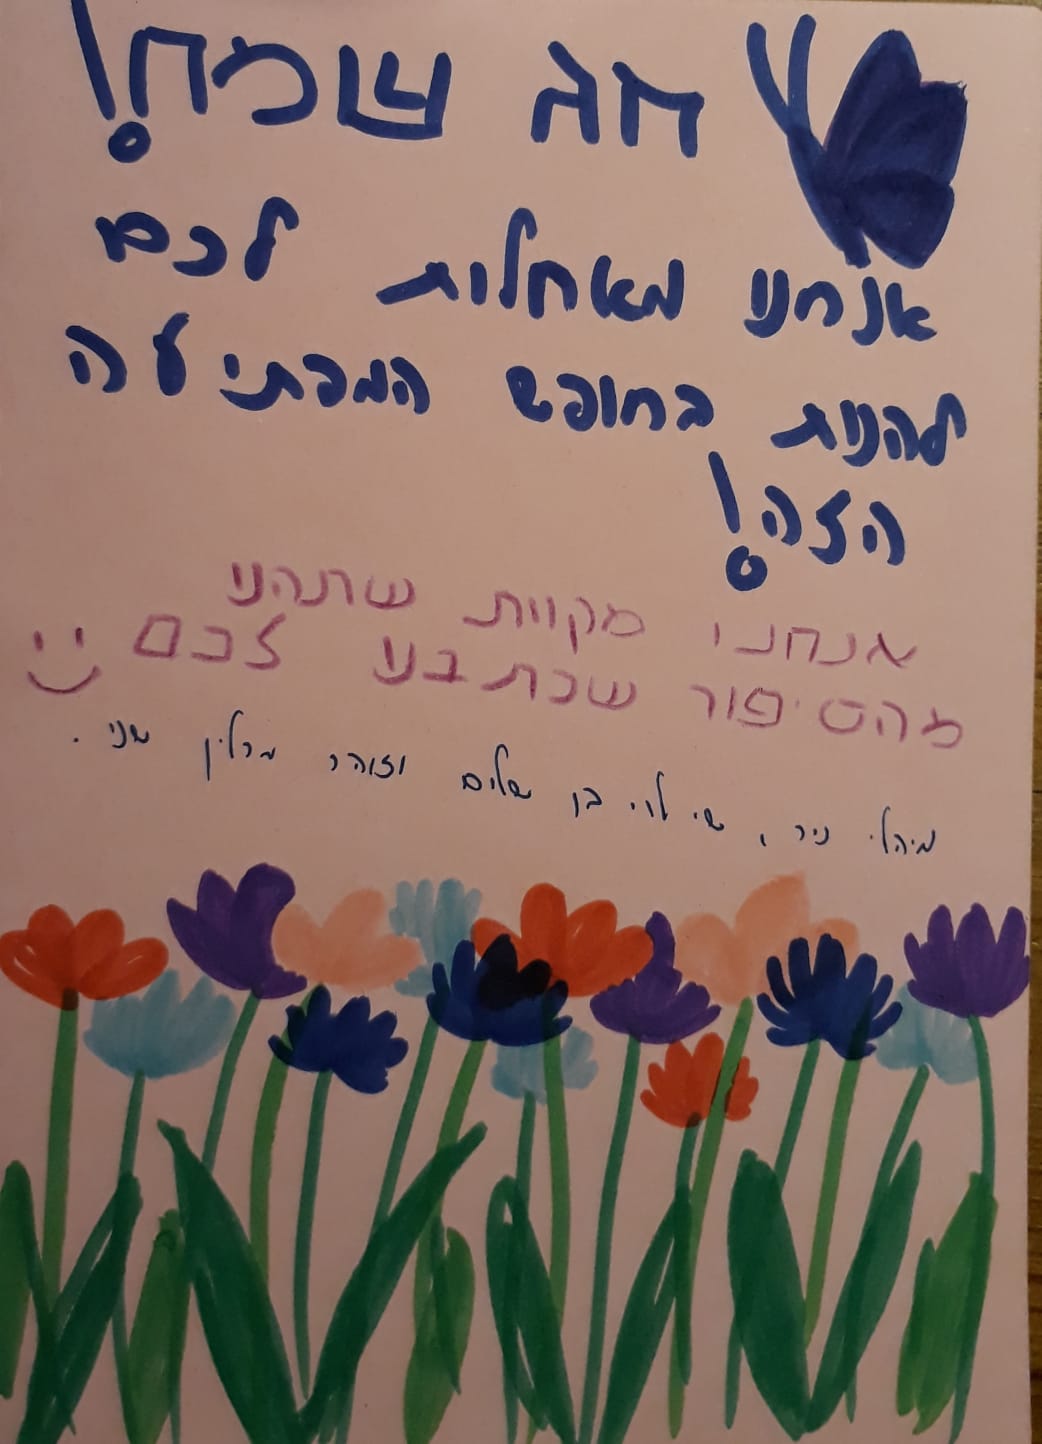 חג שמח!
אנחנו מאחלות לכם
להנות בחופש המפתיע ה
הזה!
אנחנו מקוות שתהנו
מהסיפור שכתבנו לכם
מיהלי ניר, שי לוי בן שלום וזוהר מרלין שני.